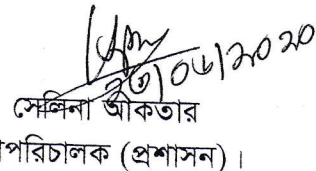 ২৩/০৬/২০২০
সেলিনা আকতার
পরিচালক (প্রশাসন)।